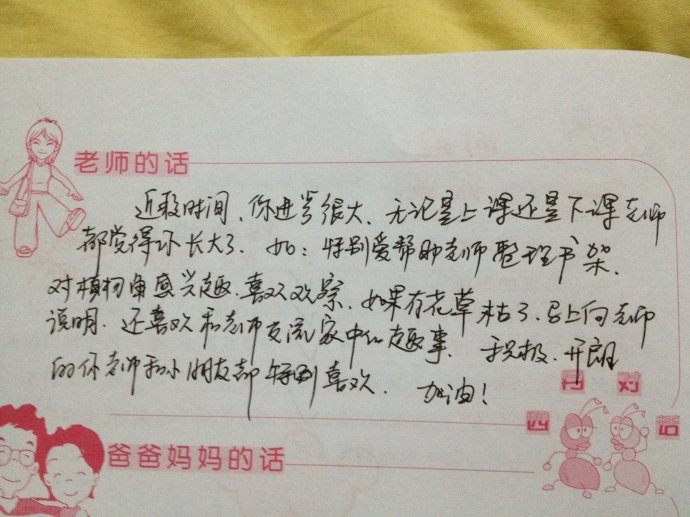 老师的话
近段时间、你进步很大、无论是上课还是下课老师
都觉得你长大了. 如：特别爱帮助老师整理书架.
对植物角感兴趣.喜欢观察.如果有花草枯了.马上向老师
说明.还喜欢和老师交流家中的趣事. 积极.开朗
的你老师和小朋友都特别喜欢. 加油!
四月对话
爸爸妈妈的话